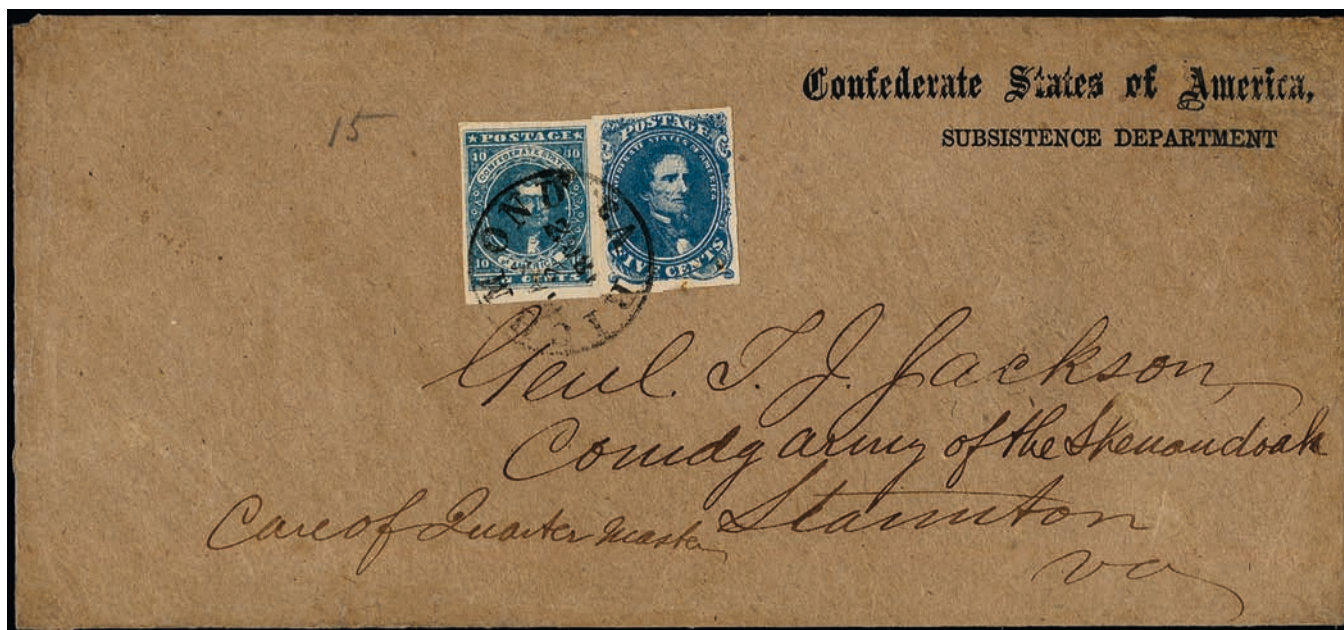 Confederate States of America,
SUBSISTENCE DEPARTMENT
15
POSTAGE
10 10
CONFEDERATE STATES
OF AMERICA
10
CENTS
POSTAGE
CONFEDERATE STATES OF AMERICA
FIVE CENTS
RICHMOND VA
Genl. T. J. Jackson,
Comdg army of the Shenandoah
Care of Quarter Master Staunton
Va